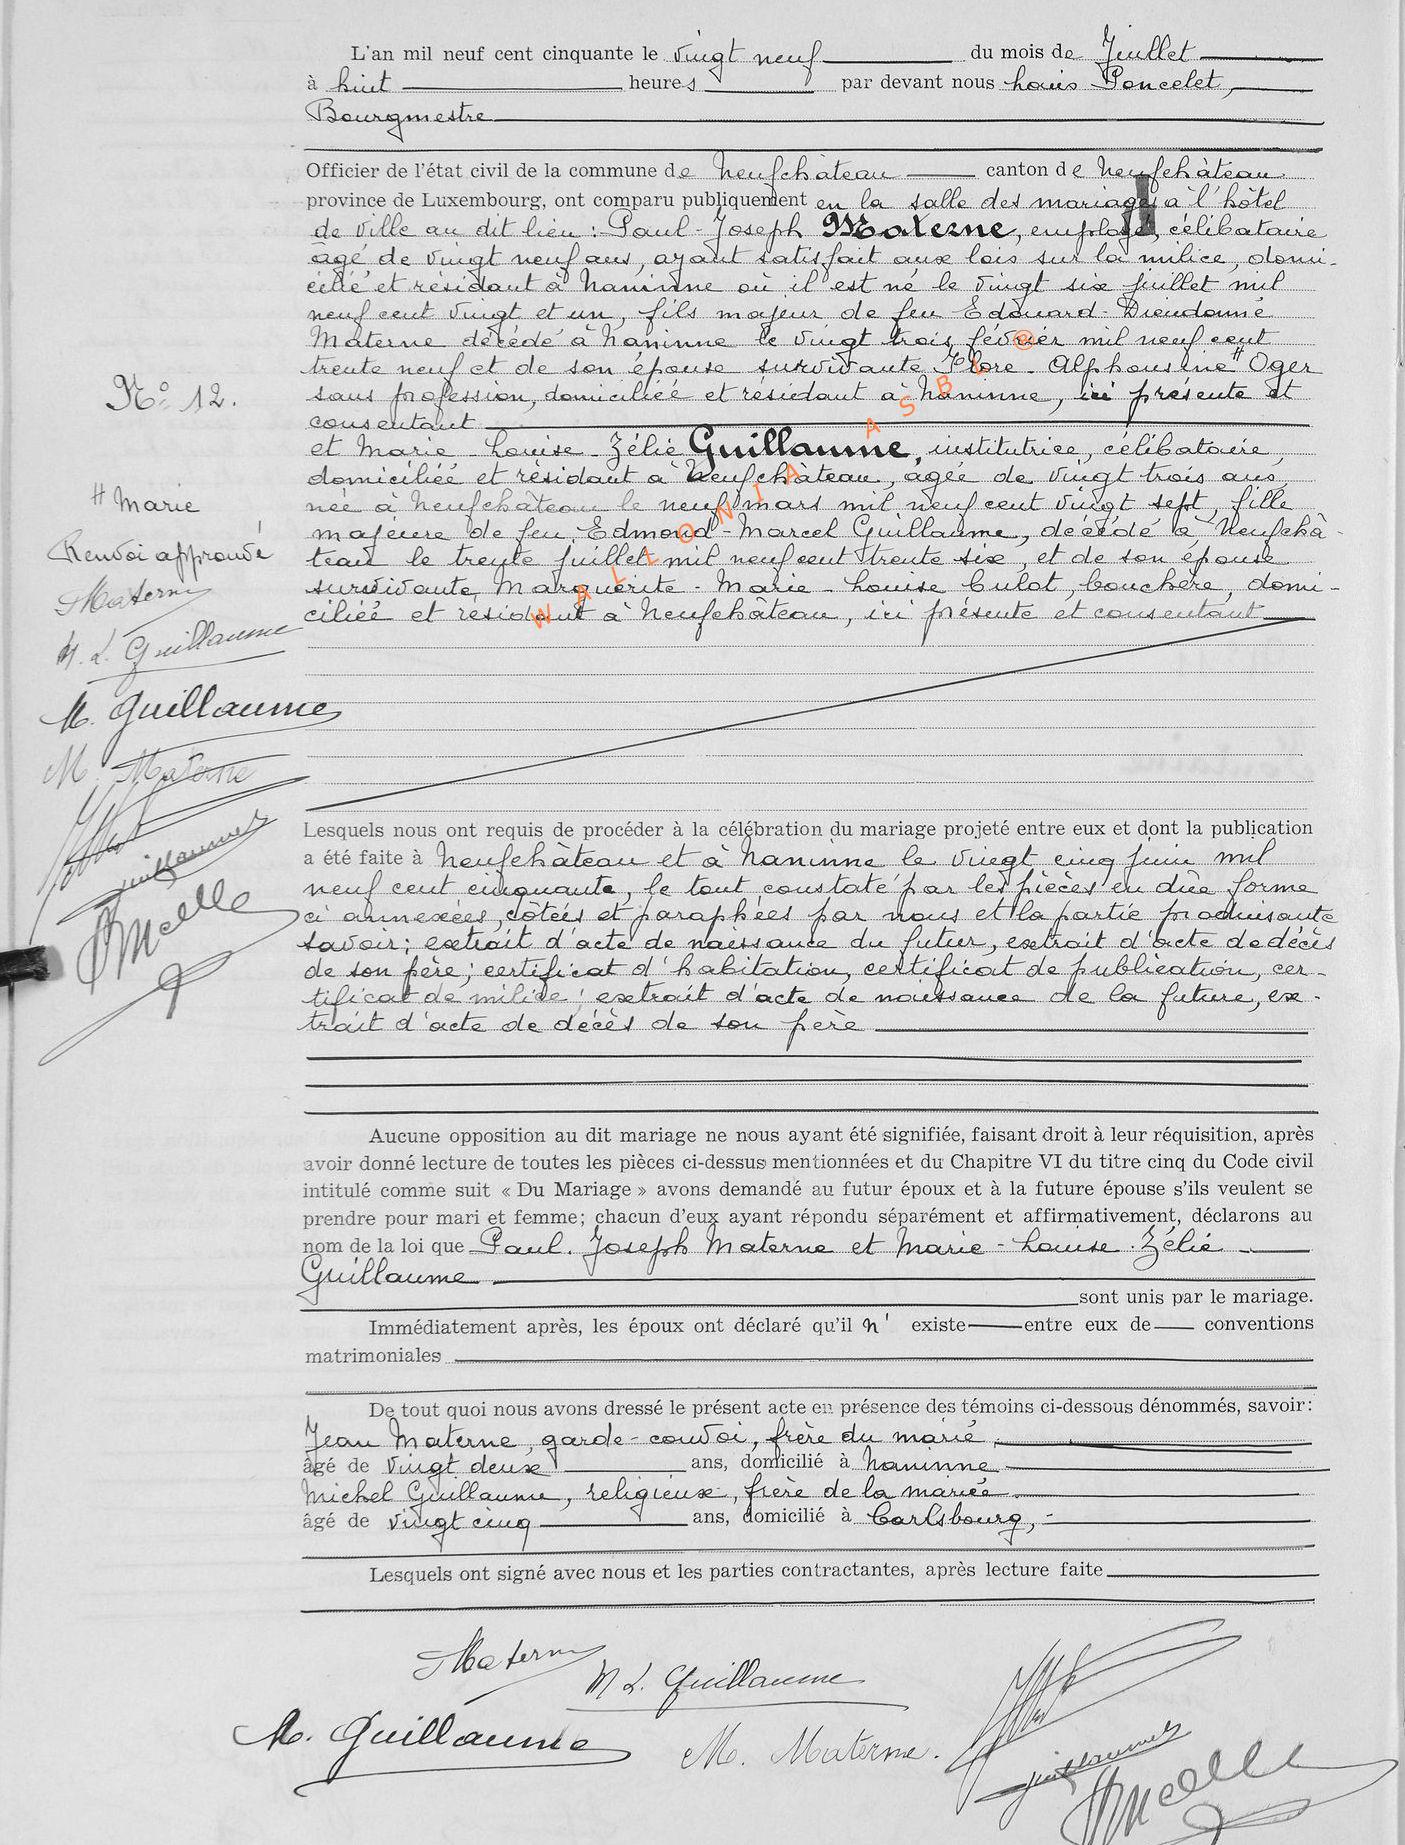 L'an mil neuf cent cinquante le vingt neuf du mois de Juillet
à huit heures par devant nous Louis Poncelet,
Bourgmestre
Officier de l'état civil de la commune de Neufchâteau canton de Neufchâteau
province de Luxembourg, ont comparu publiquement en la salle des mariages à l'hôtel
de ville au dit lieu : Paul-Joseph Materne, employé, célibataire
âgé de vingt neuf ans, ayant satisfait aux lois sur la milice, domi-
cilié et résidant à Naninne où il est né le vingt six juillet mil
neuf cent vingt et un, fils majeur de feu Edouard-Dieudonné
Materne décédé à Naninne le vingt trois février mil neuf cent
trente neuf et de son épouse survivante Flore-Alphonsine # Oger
N° 12.
sans profession, domiciliée et résidant à Naninne, ici présente et
consentant
et Marie-Louise-Zélie Guillaume, institutrice, célibataire,
domiciliée et résidant à Neufchâteau, âgée de vingt trois ans,
née à Neufchâteau le neuf mars mil neuf cent vingt sept, fille
majeure de feu Edmond-Marcel Guillaume, décédé à Neufchâ-
teau le trente juillet mil neuf cent trente six, et de son épouse
survivante, Marguerite-Marie-Louise Culot, bouchère, domi-
ciliée et résidant à Neufchâteau, ici présente et consentant
WALLONIA ASBL ®
# Marie
Renvoi approuvé
Materne
M. L. Guillaume
M. Guillaume
M. Materne
Guillaume
Lesquels nous ont requis de procéder à la célébration du mariage projeté entre eux et dont la publication
a été faite à Neufchâteau et à Naninne le vingt cinq juin mil
neuf cent cinquante, le tout constaté par les pièces en due forme
ci annexées, côtées et paraphées par nous et la partie produisante
savoir; extrait d'acte de naissance du futur, extrait d'acte de décès
de son père; certificat d'habitation, certificat de publication, cer-
tificat de milice; extrait d'acte de naissance de la future, ex-
trait d'acte de décès de son père
Aucune opposition au dit mariage ne nous ayant été signifiée, faisant droit à leur réquisition, après
avoir donné lecture de toutes les pièces ci-dessus mentionnées et du Chapitre VI du titre cinq du Code civil
intitulé comme suit « Du Mariage » avons demandé au futur époux et à la future épouse s'ils veulent se
prendre pour mari et femme; chacun d'eux ayant répondu séparément et affirmativement, déclarons au
nom de la loi que Paul-Joseph Materne et Marie-Louise-Zélie
Guillaume
sont unis par le mariage.
Immédiatement après, les époux ont déclaré qu'il n' existe entre eux de conventions
matrimoniales
De tout quoi nous avons dressé le présent acte en présence des témoins ci-dessous dénommés, savoir:
Jean Materne, garde-convoi, frère du marié,
âgé de vingt deux ans, domicilié à Naninne
Michel Guillaume, religieux, frère de la mariée
âgé de vingt cinq ans, domicilié à Carlsbourg,
Lesquels ont signé avec nous et les parties contractantes, après lecture faite
Materne
M L. Guillaume
M. Guillaume
M. Materne.
Guillaume